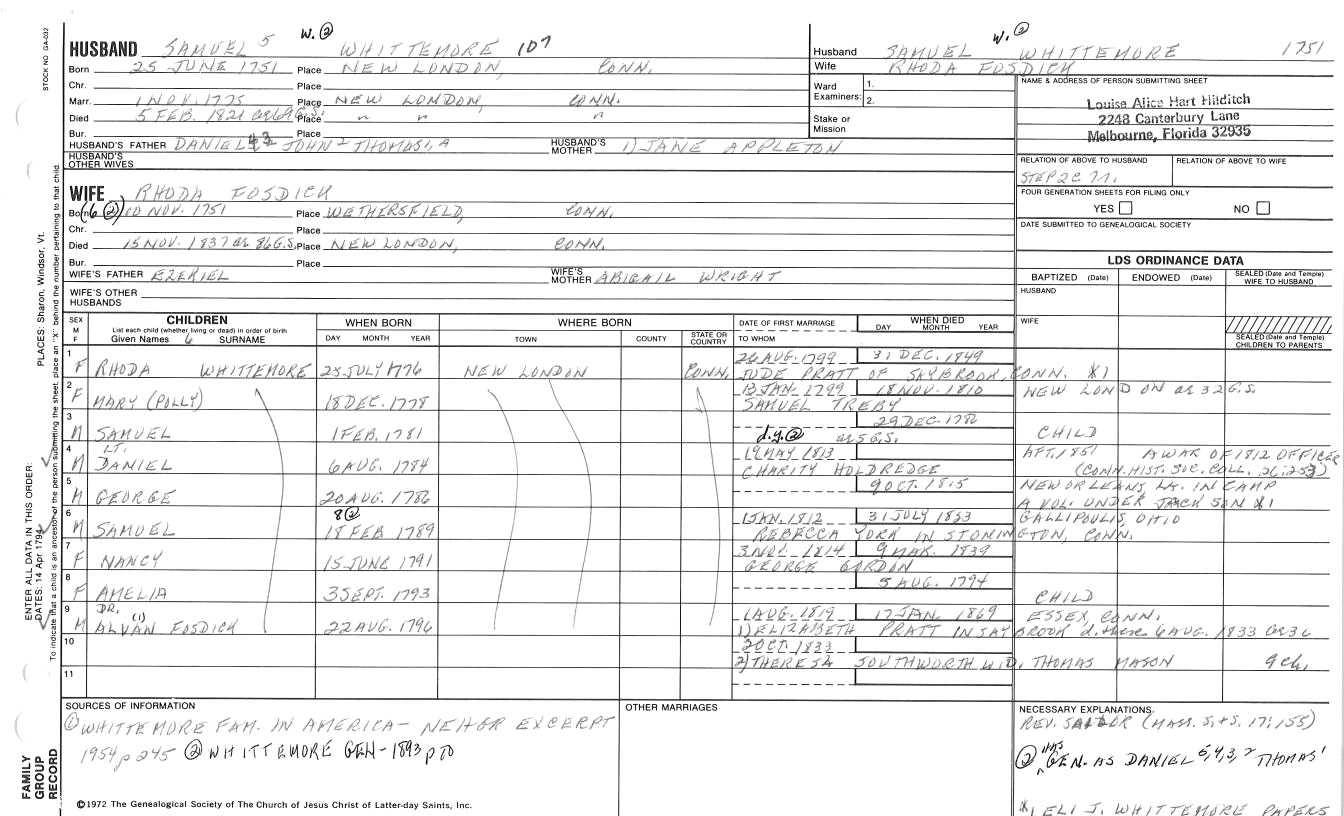 STOCK NO GA-032
PLACES: Sharon, Windsor, Vt.
ENTER ALL DATA IN THIS ORDER:
DATES: 14 Apr 1794
To indicate that a child is an ancestor of the person submitting the sheet, place an "X" behind the number pertaining to that child.
FAMILY
GROUP
RECORD
W. ②
HUSBAND SAMUEL 5 WHITTEMORE 107
Born 25 JUNE 1751 Place NEW LONDON, CONN.
Chr. Place
Marr. 1 NOV. 1775 Place NEW LONDON, CONN.
Died 5 FEB. 1821 Æ 69 G.S. Place " " "
Bur.
HUSBAND'S FATHER DANIEL JOHN 2 THOMAS 1, A HUSBAND'S MOTHER 1) JANE APPLETON
HUSBAND'S OTHER WIVES
WIFE RHODA FOSDICK
Born (6 ②) 10 NOV. 1751 Place WETHERSFIELD, CONN.
Chr. Place
Died 15 NOV. 1837 Æ 86 G.S. Place NEW LONDON, CONN.
Bur. Place
WIFE'S FATHER EZEKIEL WIFE'S MOTHER ABIGAIL WRIGHT
WIFE'S OTHER HUSBANDS
W. ②
Husband SAMUEL WHITTEMORE 1751
Wife RHODA FOSDICK
Ward 1.
Examiners: 2.
Stake or
Mission
NAME & ADDRESS OF PERSON SUBMITTING SHEET
Louise Alice Hart Hilditch
2248 Canterbury Lane
Melbourne, Florida 32935
RELATION OF ABOVE TO HUSBAND RELATION OF ABOVE TO WIFE
STEP 2C
FOUR GENERATION SHEETS FOR FILING ONLY
YES NO
DATE SUBMITTED TO GENEALOGICAL SOCIETY
LDS ORDINANCE DATA
BAPTIZED (Date) ENDOWED (Date) SEALED (Date and Temple) WIFE TO HUSBAND
HUSBAND
WIFE
SEALED (Date and Temple)
CHILDREN TO PARENTS
SEX M F CHILDREN WHEN BORN WHERE BORN DATE OF FIRST MARRIAGE WHEN DIED
List each child (whether living or dead) in order of birth
Given Names 6 SURNAME DAY MONTH YEAR TOWN COUNTY STATE OR COUNTRY TO WHOM DAY MONTH YEAR
26 AUG. 1799 31 DEC. 1849
1 F RHODA WHITTEMORE 25 JULY 1776 NEW LONDON CONN. JUDE PRATT OF SAYBROOK, CONN. *1
13 JAN. 1799 18 NOV. 1810 NEW LONDON Æ 32 G.S.
2 F MARY (POLLY) 18 DEC. 1778 SAMUEL TREBY
29 DEC. 1786
3 M SAMUEL 1 FEB. 1781 d.y. ② Æ 5 G.S. CHILD
19 MAY 1813 AFT. 1851 A WAR OF 1812 OFFICER
4 M LT. DANIEL 6 AUG. 1784 CHARITY HOLDREDGE (CONN. HIST. SOC. COLL. 26:253)
9 OCT. 1815 NEW ORLEANS, LA. IN CAMP
5 M GEORGE 20 AUG. 1786 A VOL. UNDER JACKSON *1
8 ②
1 JAN. 1812 31 JULY 1833 GALLIPOULIS, OHIO
6 M SAMUEL 18 FEB 1789 REBECCA YORK IN STONINGTON, CONN.
3 NOV. 1814 9 MAR. 1839
7 F NANCY 15 JUNE 1791 GEORGE GORDON
5 AUG. 1794
8 F AMELIA 3 SEPT. 1793 CHILD
1 AUG. 1819 17 JAN. 1869 ESSEX, CONN.
9 M DR. ALVAN (1) FOSDICK 22 AUG. 1796 1) ELIZABETH PRATT IN SAYBROOK d. there 6 AUG. 1833 Æ 36
2 OCT. 1833
10 2) THERESA SOUTHWORTH WID. THOMAS MASON 9 ch.
11
SOURCES OF INFORMATION
① WHITTEMORE FAM. IN AMERICA - NEHGR EXCERPT
1954 p 245 ② WHITTEMORE GEN - 1893 p 70
OTHER MARRIAGES
NECESSARY EXPLANATIONS
REV. SALTER (MASS. S. & S. 17:155)
② HAS GEN. AS DANIEL 5,4,3,2 THOMAS 1
*1 ELI J. WHITTEMORE PAPERS
©1972 The Genealogical Society of The Church of Jesus Christ of Latter-day Saints, Inc.